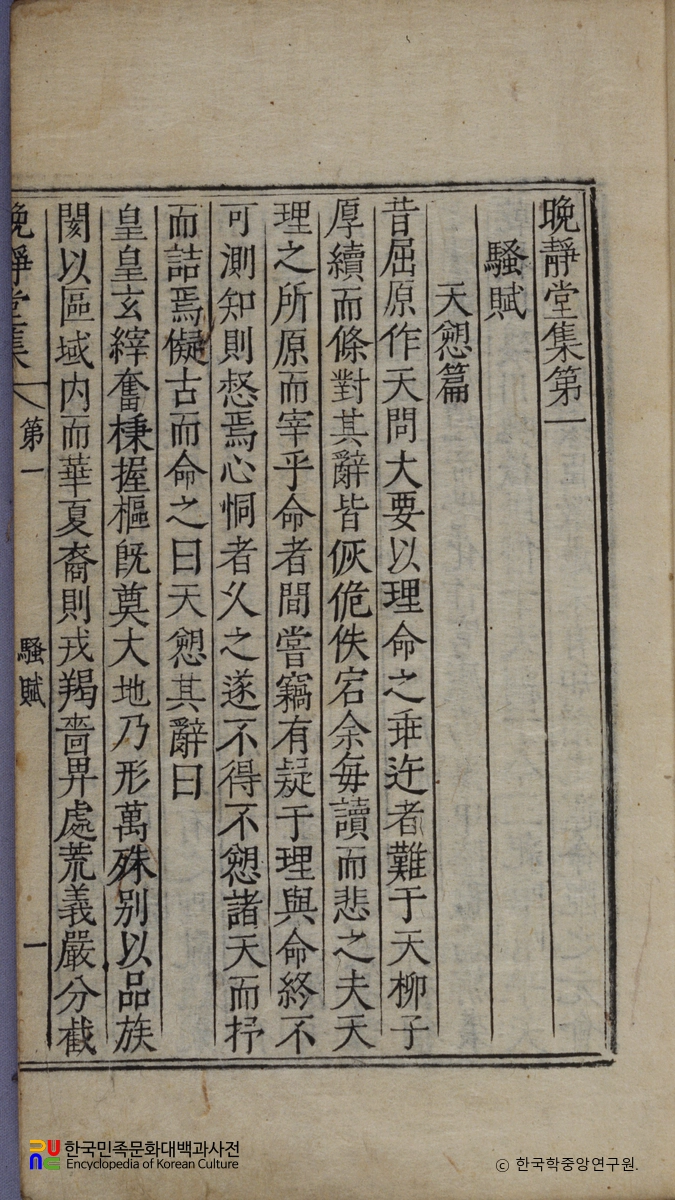 晩靜堂集第一
騷賦
天愬篇
昔屈原作天問大要以理命之乖迕者難于天柳子
厚續而條對其辭皆恢佹佚宕余每讀而悲之夫天
理之所原而宰乎命者間嘗竊有疑于理與命終不
可測知則惄焉心恫者久之遂不得不愬諸天而抒
而詰焉儗古而命之曰天愬其辭曰
皇皇玄縡奮秉握樞旣奠大地乃形萬殊别以品族
閡以區域内而華夏裔則戎羯啚畀處荒義嚴分截
晩靜堂集
第一
騷賦
一
한국민족문화대백과사전
Encyclopedia of Korean Culture
© 한국학중앙연구원.